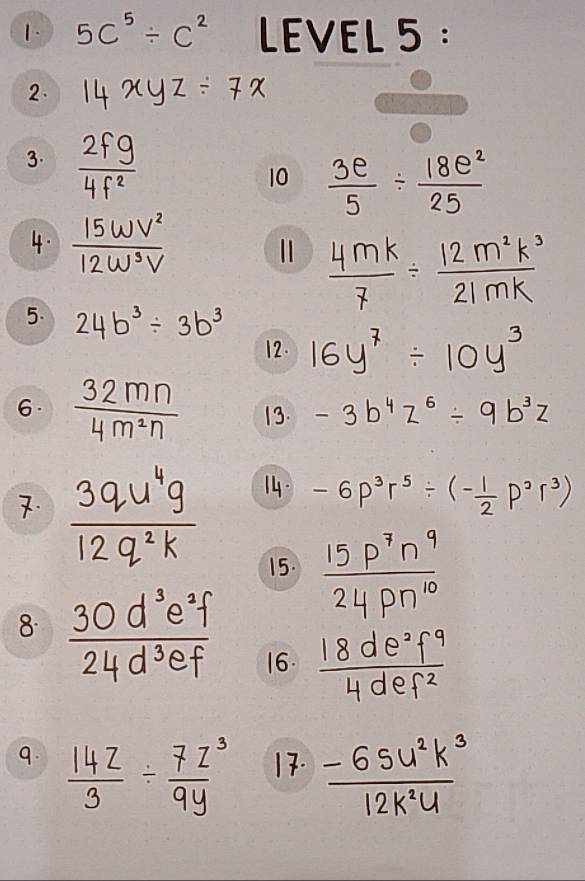 LEVEL 5 :
1. 5c⁵ ÷ c²
2. 14xyz ÷ 7x
3. 2fg / 4f²
4. 15wv² / 12w³v
5. 24b³ ÷ 3b³
6. 32mn / 4m²n
7. 3qu⁴g / 12q²k
8. 30d³e²f / 24d³ef
9. 14z / 3 ÷ 7z³ / 9y
10 3e / 5 ÷ 18e² / 25
11 4mk / 7 ÷ 12m²k³ / 21mk
12. 16y⁷ ÷ 10y³
13. -3b⁴z⁶ ÷ 9b³z
14. -6p³r⁵ ÷ (-1/2 p²r³)
15. 15p⁷n⁹ / 24pn¹⁰
16. 18de²f⁹ / 4def²
17. -6su²k³ / 12k²u